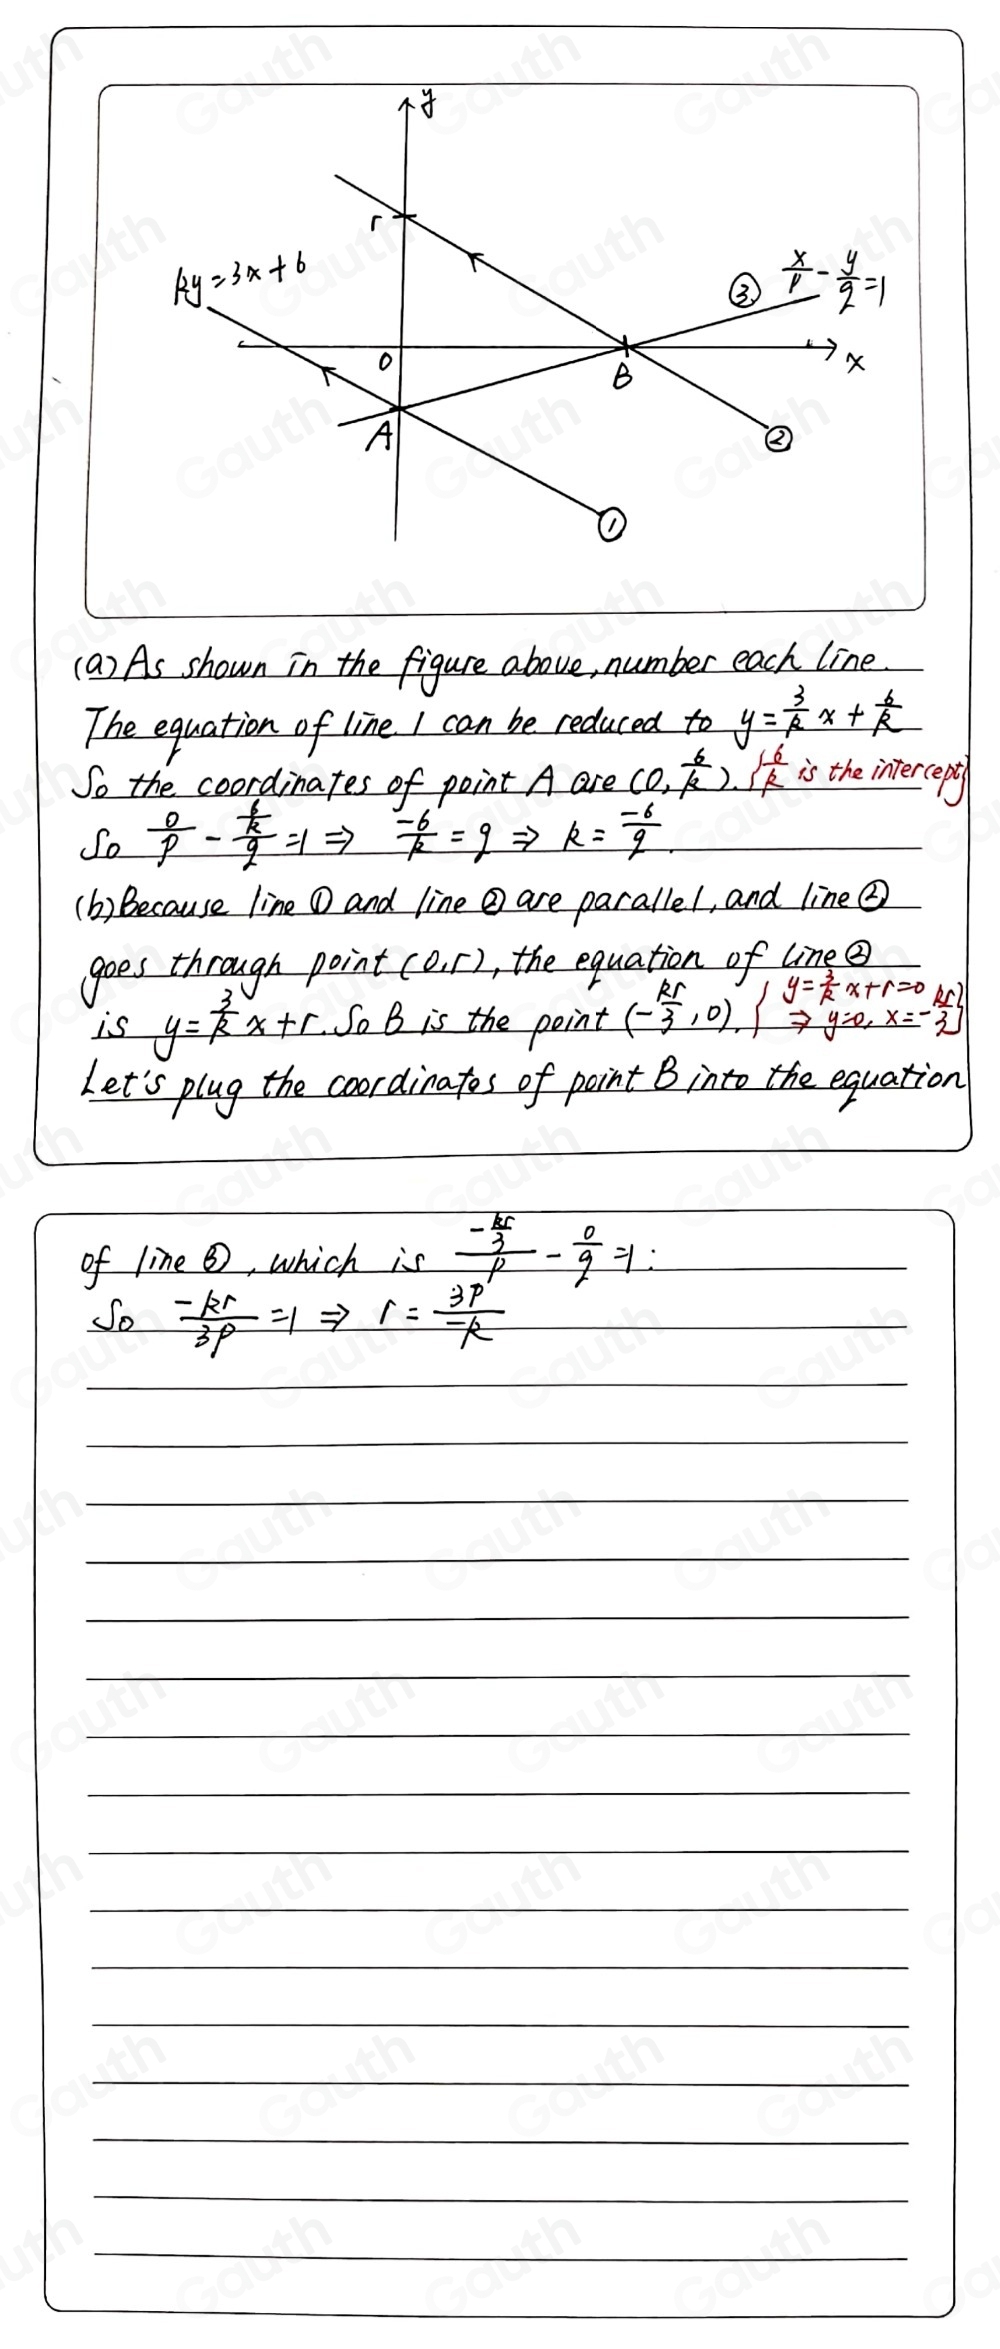 y
r
ky=3x+6
③ x/p - y/q =1
O
B
x
A
②
①
(a) As shown in the figure above, number each line.
The equation of line 1 can be reduced to y = 3/k x + 6/k
So the coordinates of point A are (0, 6/k). {6/k is the intercept}
So 0/p - (6/k)/q =1 ⇒ -6/k = q ⇒ k = -6/q.
(b) Because line ① and line ② are parallel, and line ②
goes through point (0,r), the equation of line ②
is y = 3/k x + r. So B is the point (-kr/3, 0). {y = 3/k x + r = 0 ⇒ y=0, x = -kr/3}
Let's plug the coordinates of point B into the equation
of line ③, which is (-kr/3)/p - 0/q =1:
So -kr/3p =1 ⇒ r = 3p/-k